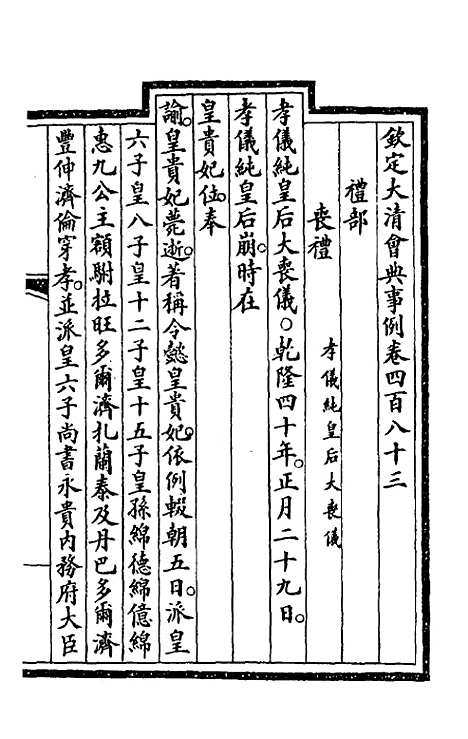 欽定大清會典事例卷四百八十三
禮部
喪禮 孝儀純皇后大喪儀
孝儀純皇后大喪儀○乾隆四十年。正月二十九日。
孝儀純皇后崩。時在
皇貴妃位。奉
諭。皇貴妃薨逝。著稱令懿皇貴妃。依例輟朝五日。派皇
六子皇八子皇十二子皇十五子皇孫綿德綿億綿
惠九公主額駙拉旺多爾濟扎蘭泰及丹巴多爾濟
豐伸濟倫穿孝。並派皇六子尚書永貴內務府大臣